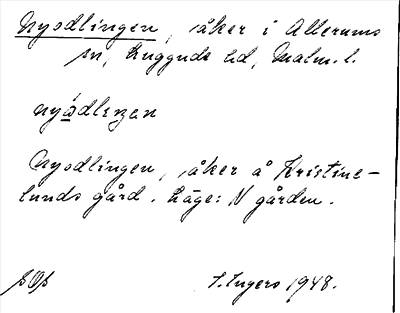 Nyodlingen, åker i Allerums
sn, Luggude hd, Malm. l.
nyo̱dlenzen
Nyodlingen, åker å Kristine-
lunds gård. Läge: N gården.
I. Ingers 1948.